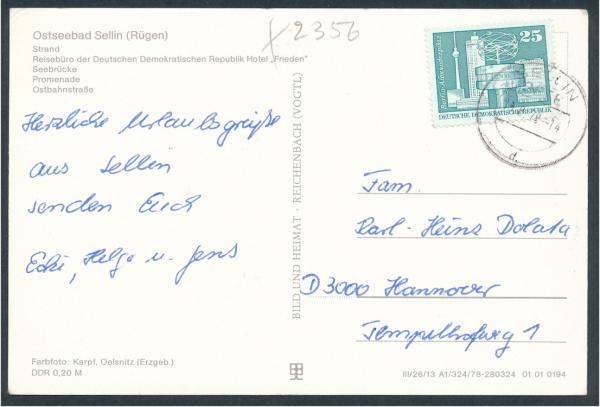 Ostseebad Sellin (Rügen)
Strand
Reisebüro der Deutschen Demokratischen Republik Hotel „Frieden"
Seebrücke
Promenade
Ostbahnstraße
x 2356
25
Berlin, Alexanderplatz
DEUTSCHE DEMOKRATISCHE REPUBLIK
Herzliche Urlaubsgrüße
aus Sellin
senden Euch
Ecki, Helga u. Jens
BILD UND HEIMAT REICHENBACH (VOGTL)
Fam.
Karl-Heinz Dolata
D3000 Hannover
Tempelhofweg 1
Farbfoto: Karpf, Oelsnitz (Erzgeb.)
DDR 0,20 M
III/26/13 A1/324/78-280324 01 01 0194